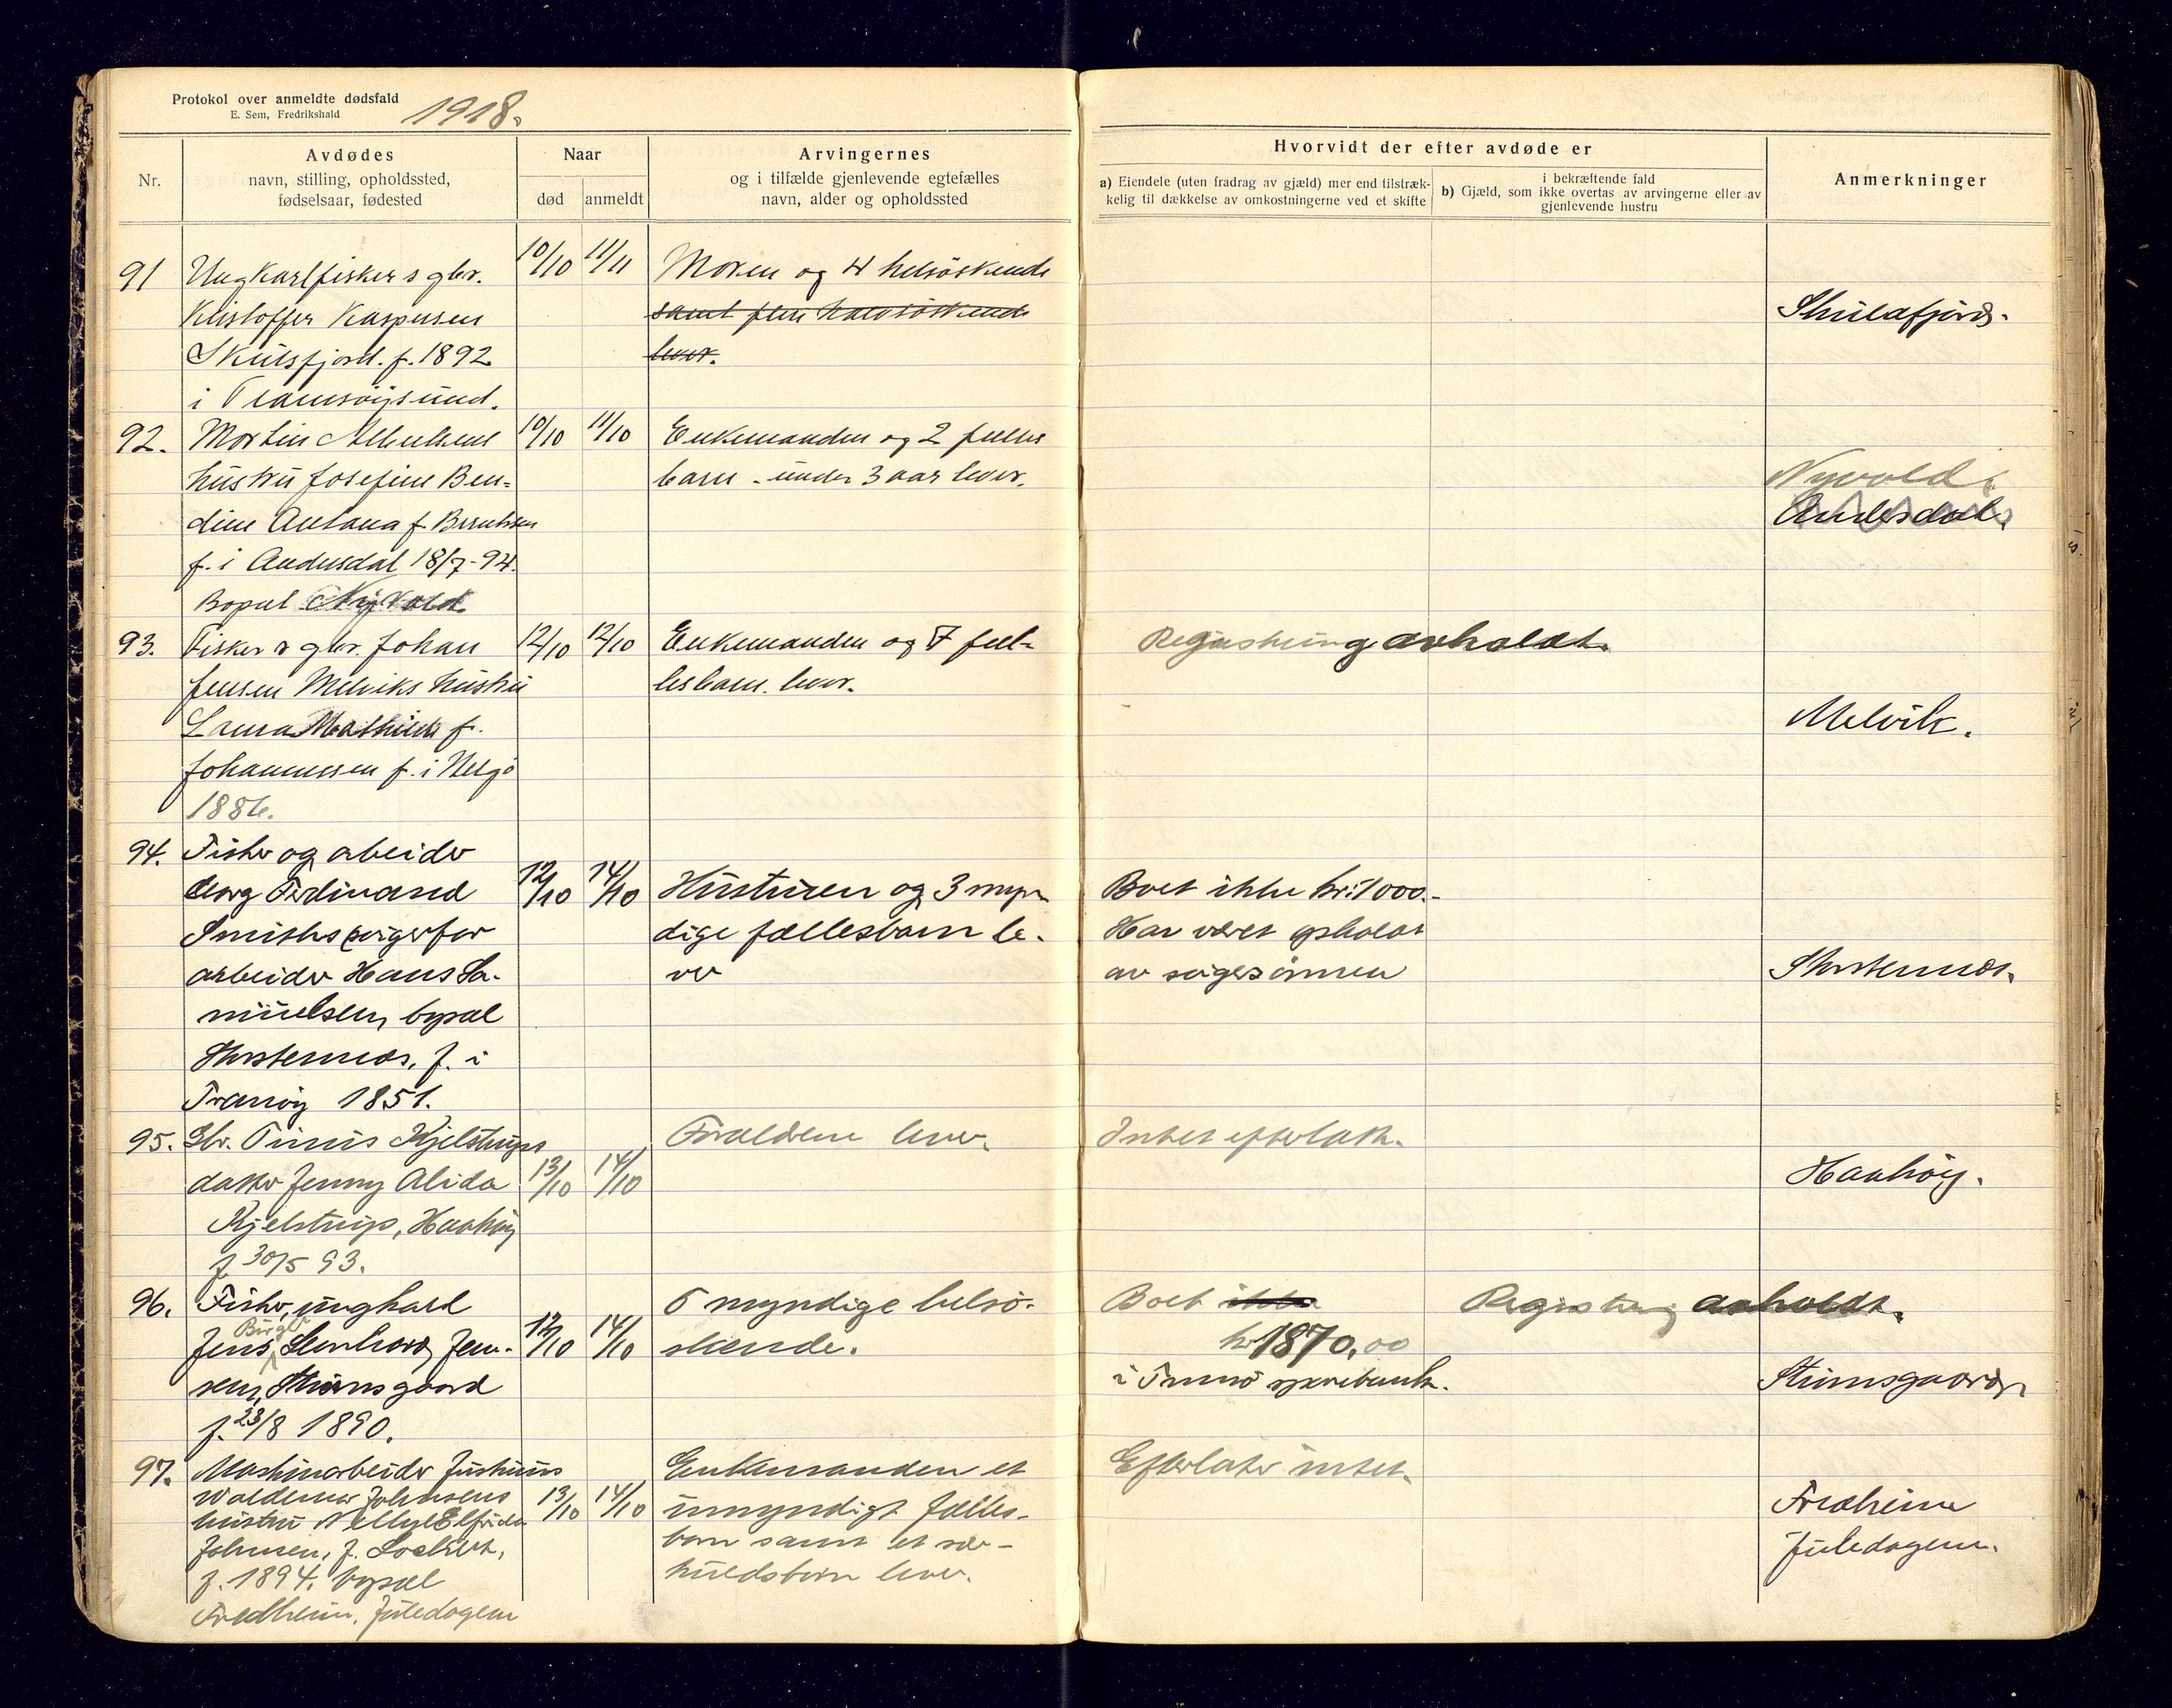 Protokol over anmeldte dødsfald
E. Sem, Fredrikshald
1918.
Nr.
Avdødes
navn, stilling, opholdssted,
fødselsaar, fødested
Naar
død
anmeldt
Arvingernes
og i tilfælde gjenlevende egtefælles
navn, alder og opholdssted
Hvorvidt der efter avdøde er
a) Eiendele (uten fradrag av gjæld) mer end tilstræk-
kelig til dækkelse av omkostningerne ved et skifte
i bekræftende fald
b) Gjæld, som ikke overtas av arvingerne eller av
gjenlevende hustru
Anmerkninger
91 Ungkarl fisker s gbr. 10/10 11/11 Moren og 4 helsøskende
Kristoffer Kaspersen samt flere halvsøskende Skulsfjord.
Skulsfjord. f. 1892 lever.
i Tromsøysund.
92. Martin Albertsens 10/10 11/10 Enkemanden og 2 fælles
hustru Josefine Ben- barn - under 3 aar lever. Nyvold
dine Antona f. Berntsen Andersdal.
f. i Andersdal 18/7-94.
Bopæl Nyvold.
93. Fisker s gbr. Johan 12/10 12/10 Enkemanden og 7 fæl- Registrering avholdt.
Jensen Melviks hustru lesbarn lever.
Laura Mathilde f. Melvik.
Johannesen f. i Helgø
1886.
94. Fisker og arbeider
Georg Ferdinand 12/10 14/10 Hustruen og 3 myn- Boet ikke kr. 1000.-
Smiths svigerfar dige fællesbarn le- Har været opholdt
arbeider Hans Sa- ver av svigersønnen Storstennes.
muelsen, bopæl
Storstennes, f. i
Tranøy 1851.
95. Gbr. Tinus Kjelstrups Forældrene lever. Intet efterlatt.
datter Jenny Alida 13/10 14/10 Haakøy.
Kjelstrup, Haakøy
f 30/5 93.
96. Fisker, ungkarl 5 myndige helsø- Boet ikke Registrering avholdt.
Jens Birger Lenhard Jen- 12/10 14/10 skende. kr 1870,00
sen, Strimsgaard i Tromsø sparebank. Strimsgaard
f. 23/8 1890.
97. Maskinarbeider Justinus Enkemanden et Efterlater intet.
Waldemar Johnsens 13/10 14/10 umyndigt fælles- Fredheim
hustru Nelly Elfrida barn samt et sær- Juledagen.
Johnsen, f. Lockert, kuldsbarn lever.
f. 1894, bopæl
Fredheim, Juledagen